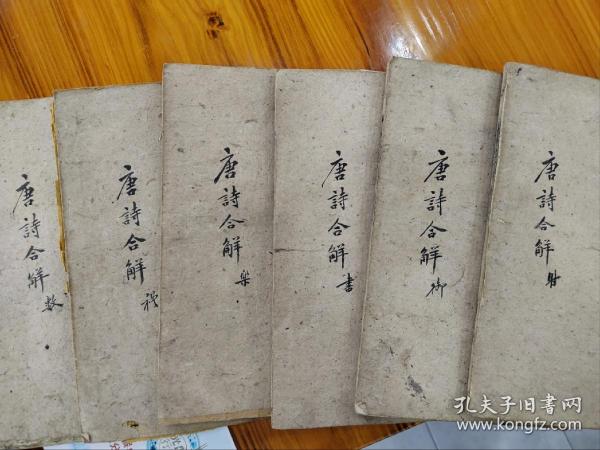 唐詩合解 数
唐詩合解 禮
唐詩合解 樂
唐詩合解 書
唐詩合解 御
唐詩合解 射
孔夫子旧書网
www.kongfz.com